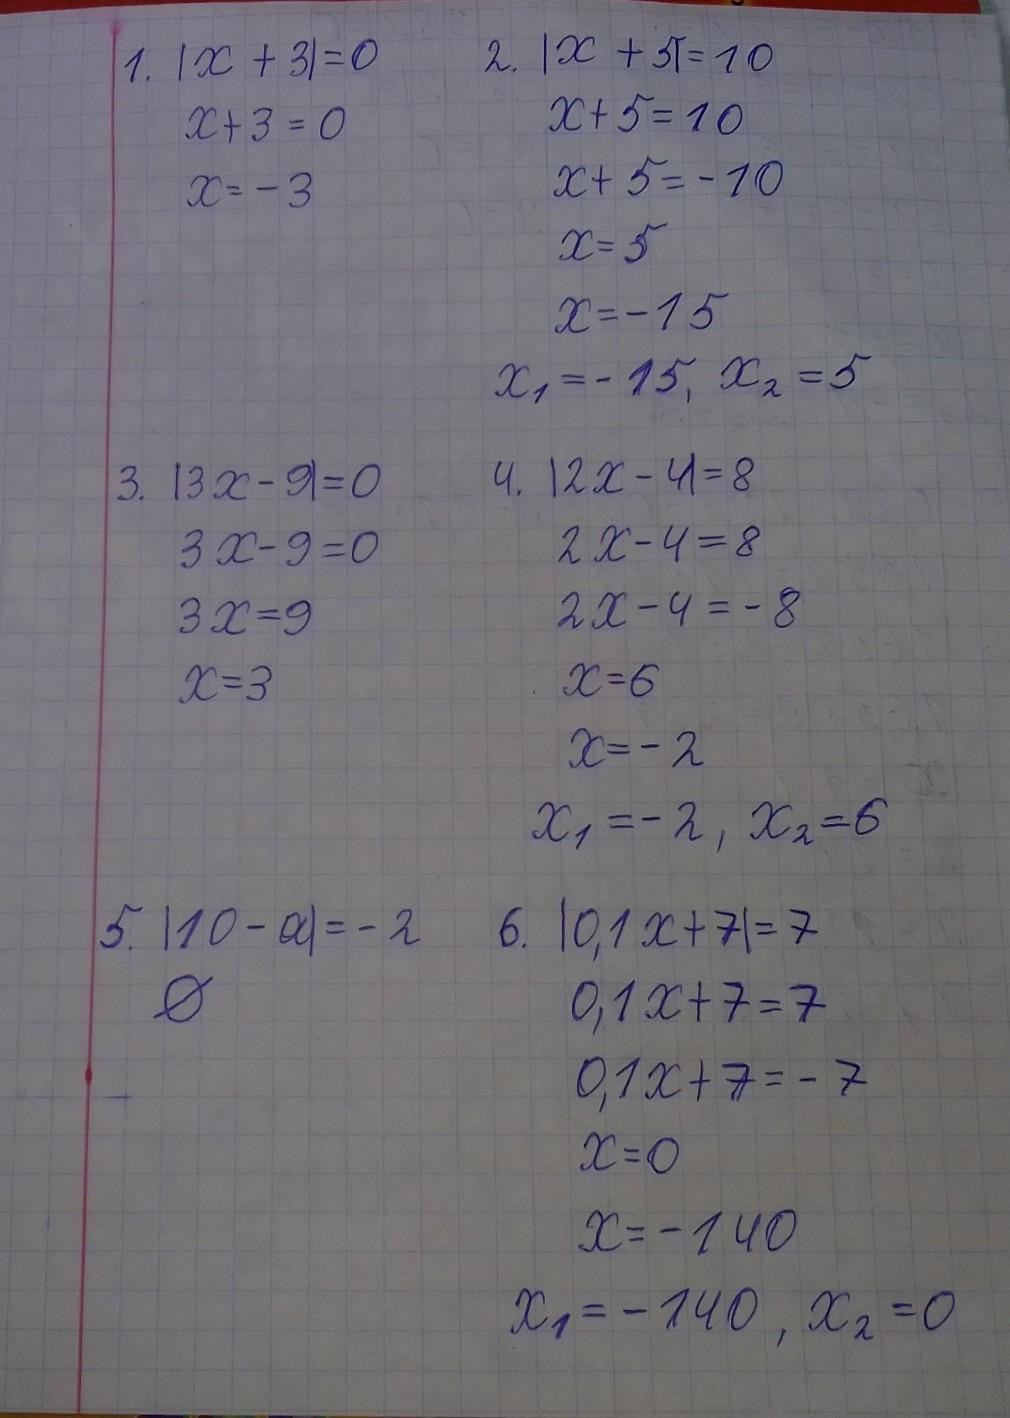 1. |x + 3| = 0
x + 3 = 0
x = - 3
2. |x + 5| = 10
x + 5 = 10
x + 5 = - 10
x = 5
x = - 15
x₁ = - 15, x₂ = 5
3. |3x - 9| = 0
3x - 9 = 0
3x = 9
x = 3
4. |2x - 4| = 8
2x - 4 = 8
2x - 4 = - 8
x = 6
x = - 2
x₁ = - 2, x₂ = 6
5. |10 - a| = - 2
∅
6. |0,1x + 7| = 7
0,1x + 7 = 7
0,1x + 7 = - 7
x = 0
x = - 140
x₁ = - 140, x₂ = 0